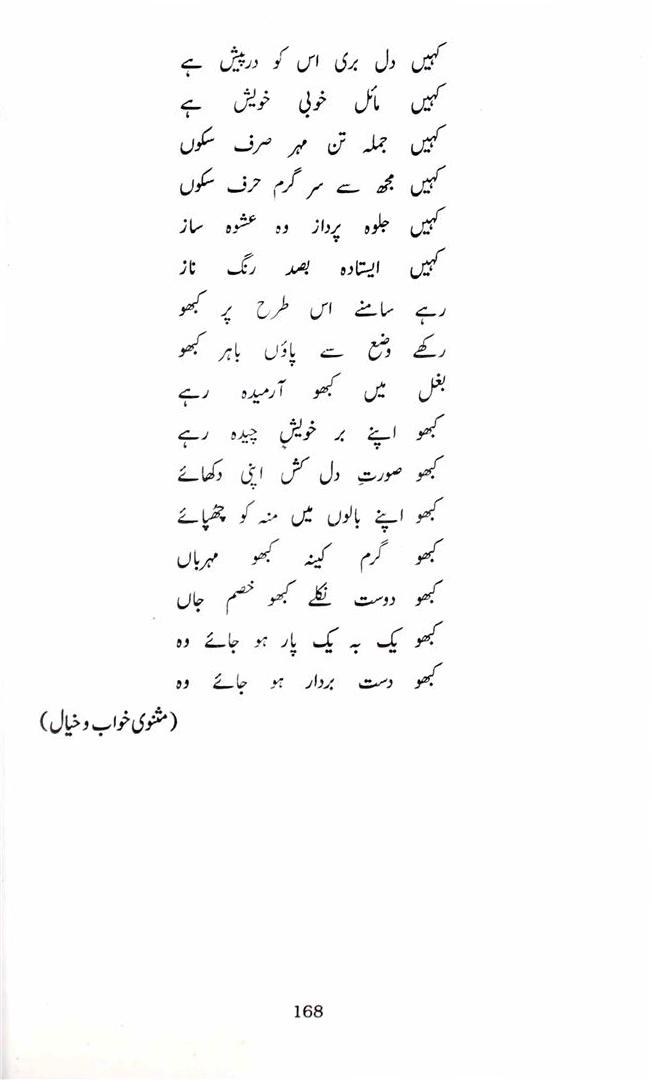 کہیں دل بری اس کو درپیش ہے
کہیں مائل خوبی خویش ہے
کہیں جملہ تن مہر صرف سکوں
کہیں مجھ سے سر گرم حرف سکوں
کہیں جلوہ پرداز وہ عشوہ ساز
کہیں ایستادہ بصد رنگ ناز
رہے سامنے اس طرح پر کبھو
رکھے وضع سے پاؤں باہر کبھو
بغل میں کبھو آرمیدہ رہے
کبھو اپنے بر خویش چیدہ رہے
کبھو صورتِ دل کش اپنی دکھائے
کبھو اپنے بالوں میں منہ کو چھپائے
کبھو گرم کینہ کبھو مہرباں
کبھو دوست نکلے کبھو خصم جاں
کبھو یک بہ یک پار ہو جائے وہ
کبھو دست بردار ہو جائے وہ
(مثنوی خواب و خیال)
168